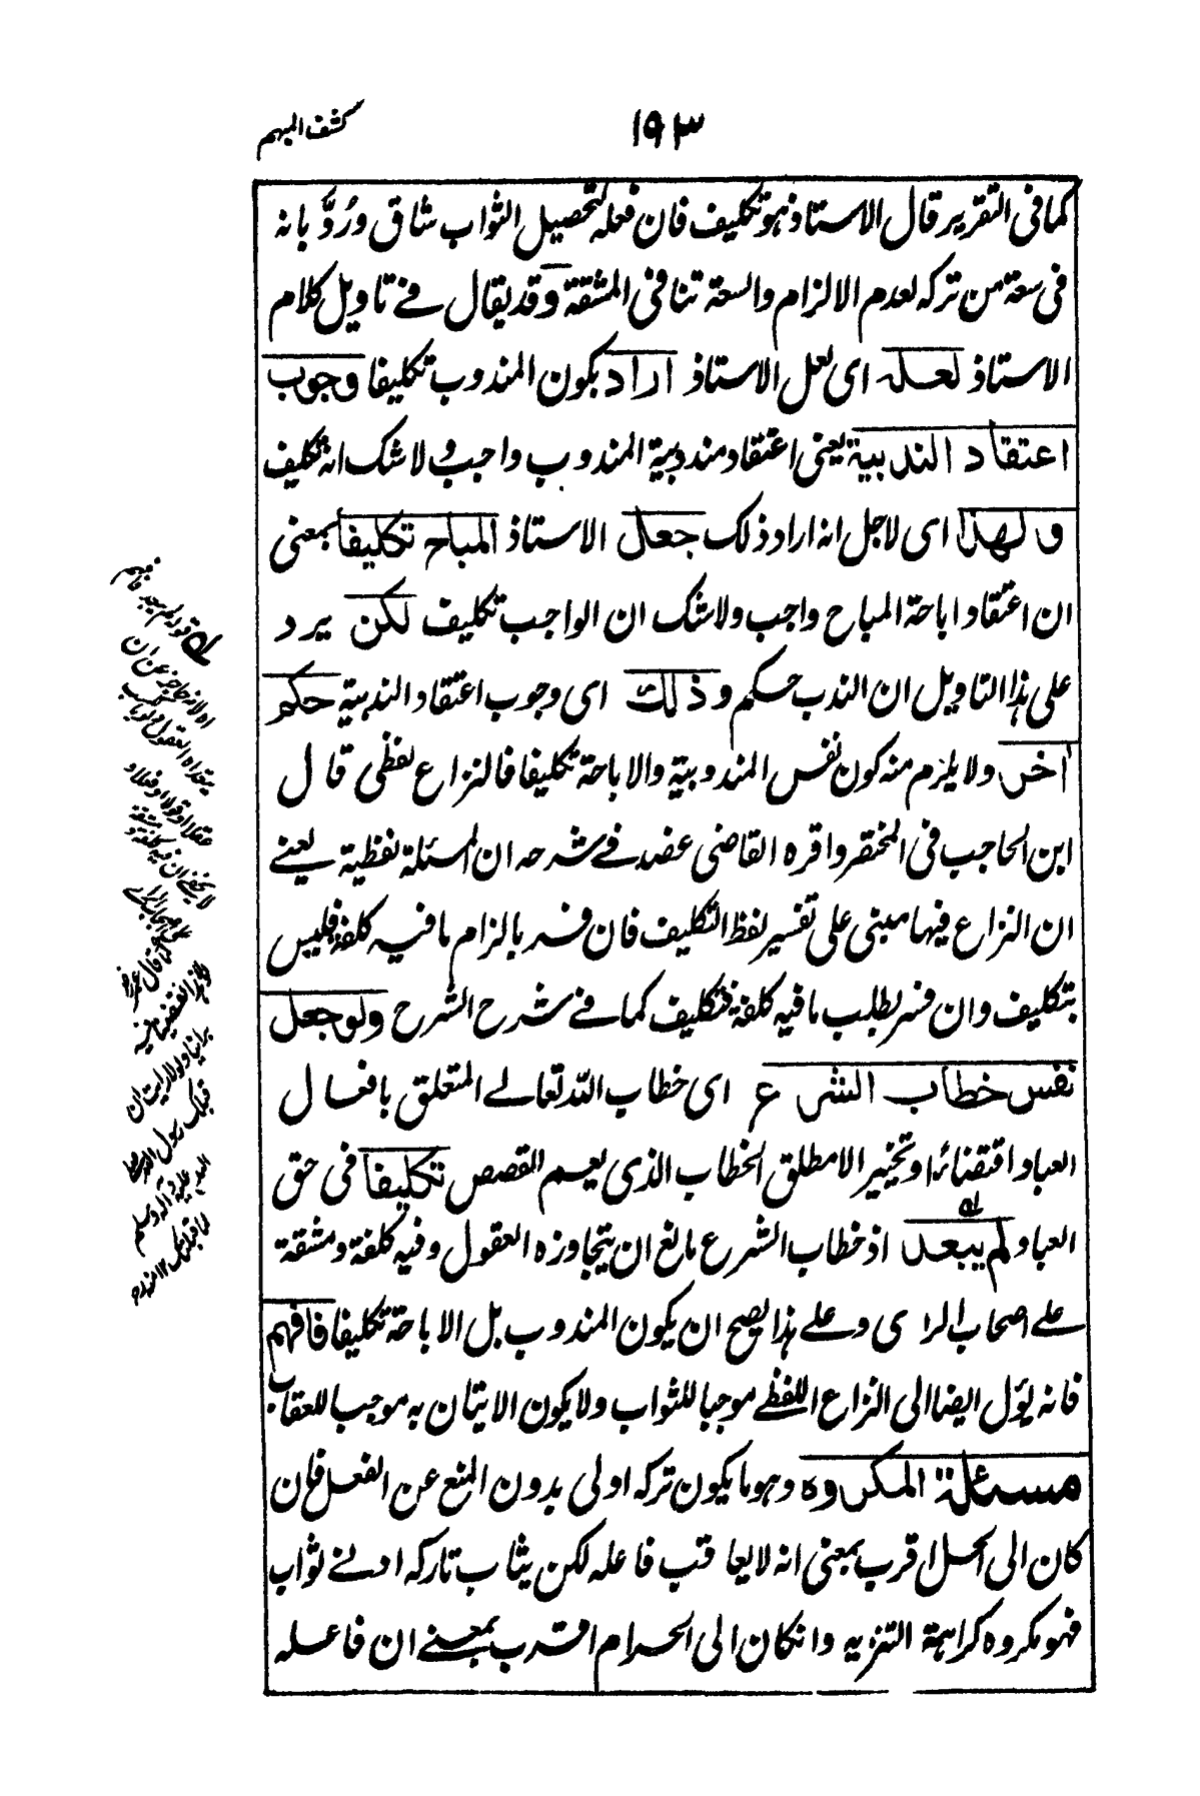 ١٩٣
كشف المبهم
كما فى التقرير قال الاستاذ هو تكليف فان فعله لتحصيل الثواب شاق ورُدَّ بانه
فى سعة من تركه لعدم الالزام والسعة تنافى المشقة وقد يقال فى تاويل كلام
الاستاذ لعله اى لعل الاستاذ اراد بكون المندوب تكليفا وجوب
اعتقاد الندبية يعنى اعتقاد مندوبية المندوب واجب ولا شك انه تكليف
ولهذا اى لاجل انه اراد ذلك جعل الاستاذ المباح تكليفا بمعنى
ان اعتقاد اباحة المباح واجب ولا شك ان الواجب تكليف لكن يرد
على هذا التاويل ان الندب حكم وذلك اى وجوب اعتقاد الندبية حكم
اخر ولا يلزم منه كون نفس المندوبية والاباحة تكليفا فالنزاع لفظى قال
ابن الحاجب فى المختصر واقره القاضى عضد فى شرحه ان المسئلة لفظية يعنى
ان النزاع فيها مبنى على تفسير لفظ التكليف فان فسر بالزام ما فيه كلفة فليس
بتكليف وان فسر بطلب ما فيه كلفة فتكليف كما فى شرح الشرح ولو جعل
نفس خطاب الشرع اى خطاب الله تعالى المتعلق بافعال
العباد اقتضائا او تخيير الامطلق الخطاب الذى يعم القصص تكليفا فى حق
العباد لم يبعد اذ خطاب الشرع مانع ان يتجاوزه العقول وفيه كلفة ومشقة
على اصحاب الراى وعلى هذا يصح ان يكون المندوب بل الاباحة تكليفا فافهم
فانه يؤل ايضا الى النزاع اللفظى موجبا للثواب ولا يكون الاتيان به موجبا للعقاب
مسئلة المكروه وهو ما يكون تركه اولى بدون المنع عن الفعل فان
كان الى الحل اقرب بمعنى انه لا يعاقب فاعله لكن يثاب تاركه ادنى ثواب
فهو مكروه كراهة التنزيه وانكان الى الحرام اقرب بمعنى ان فاعله
قوله لم يبعد فافهم
اه لانه حاجز عن ان
يتعداه العقول
عقلا او قولا او فعلا و
لا يخفى ان فيه كلفة ومشقة
على اصحاب الراى
قال عمر رض
برأينا ولولا رأيت ان
قبلك رسول الله صلى
الله عليه وآله وسلم
لما قبلتك ١٢ منه رح